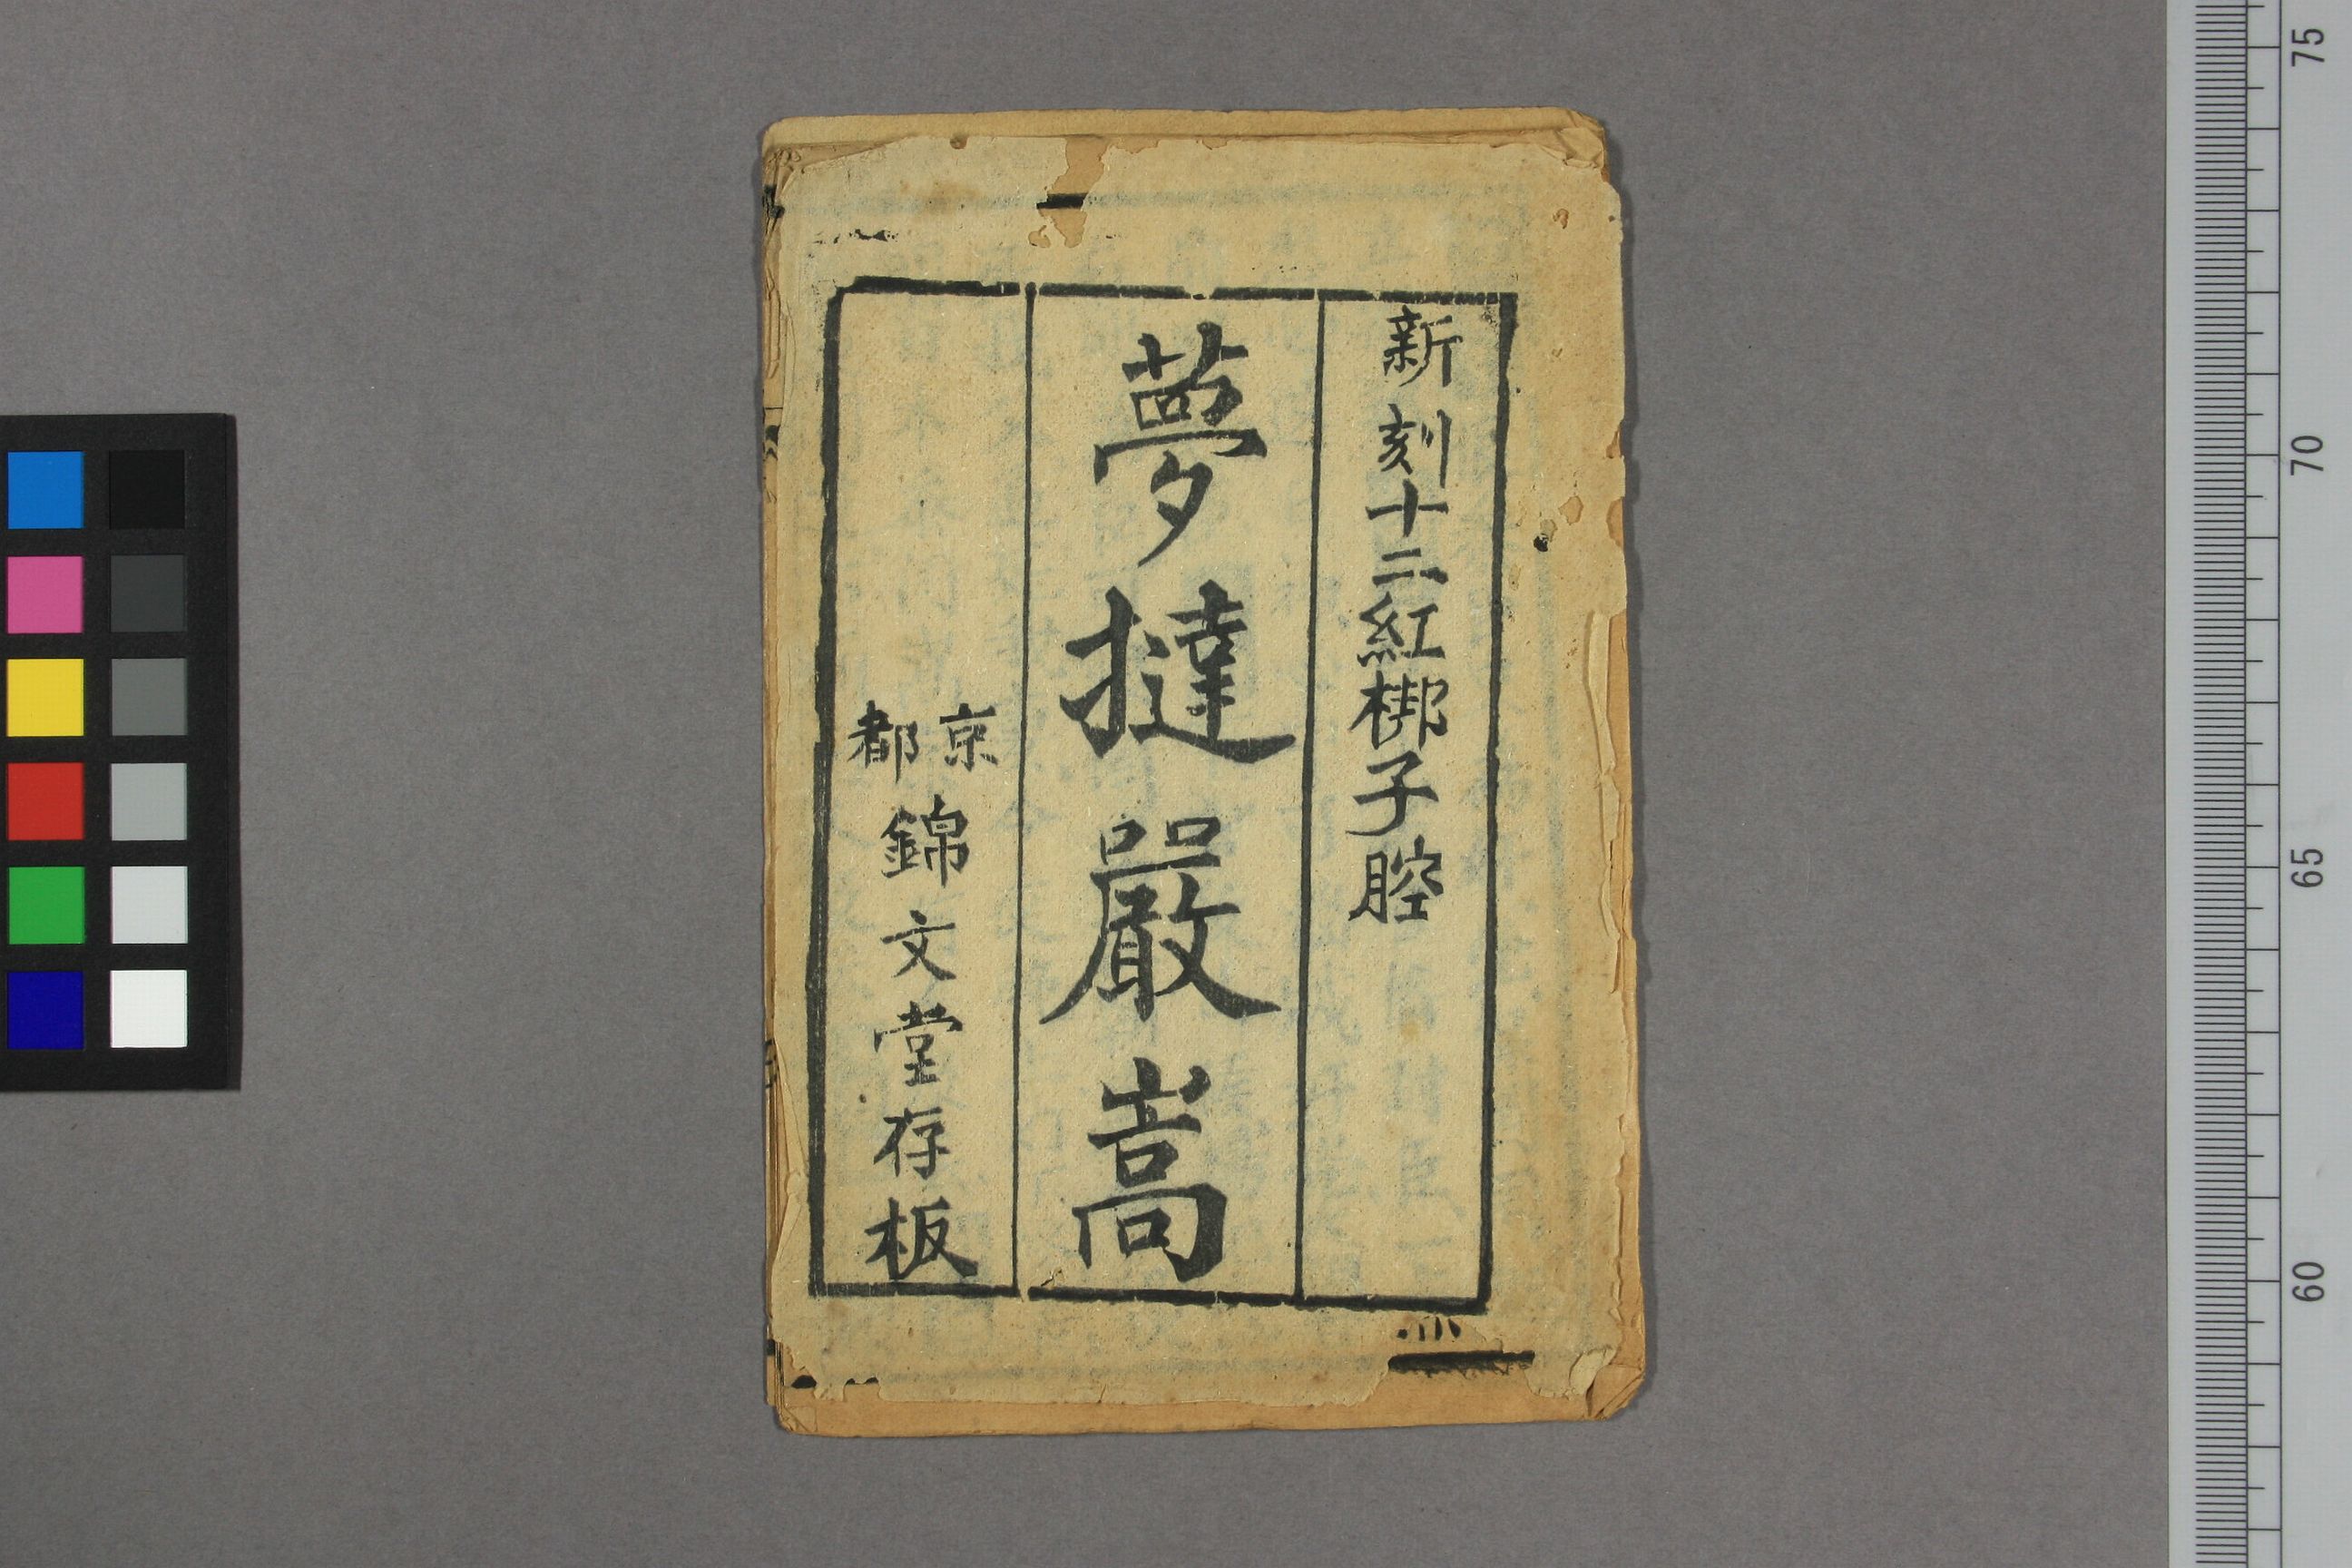 新刻十二紅梆子腔
夢撻嚴嵩
京都
錦文堂存板
75
70
65
60